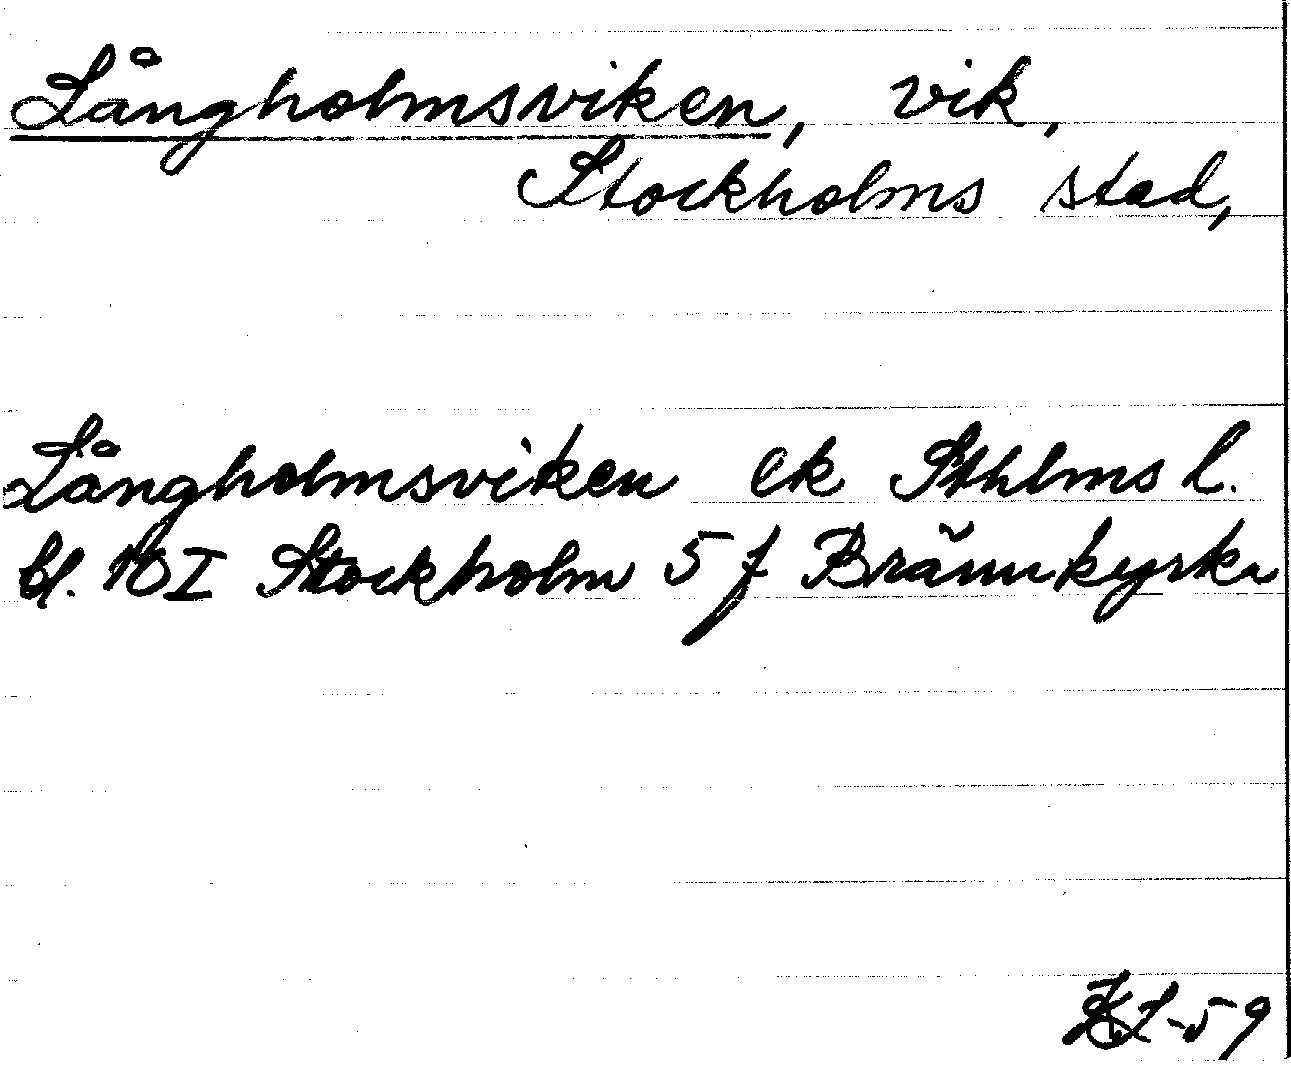 Långholmsviken, vik,
Stockholms stad,
Långholmsviken ek Sthlms l.
bl. 10 I Stockholm 5 f Brännkyrka
-59